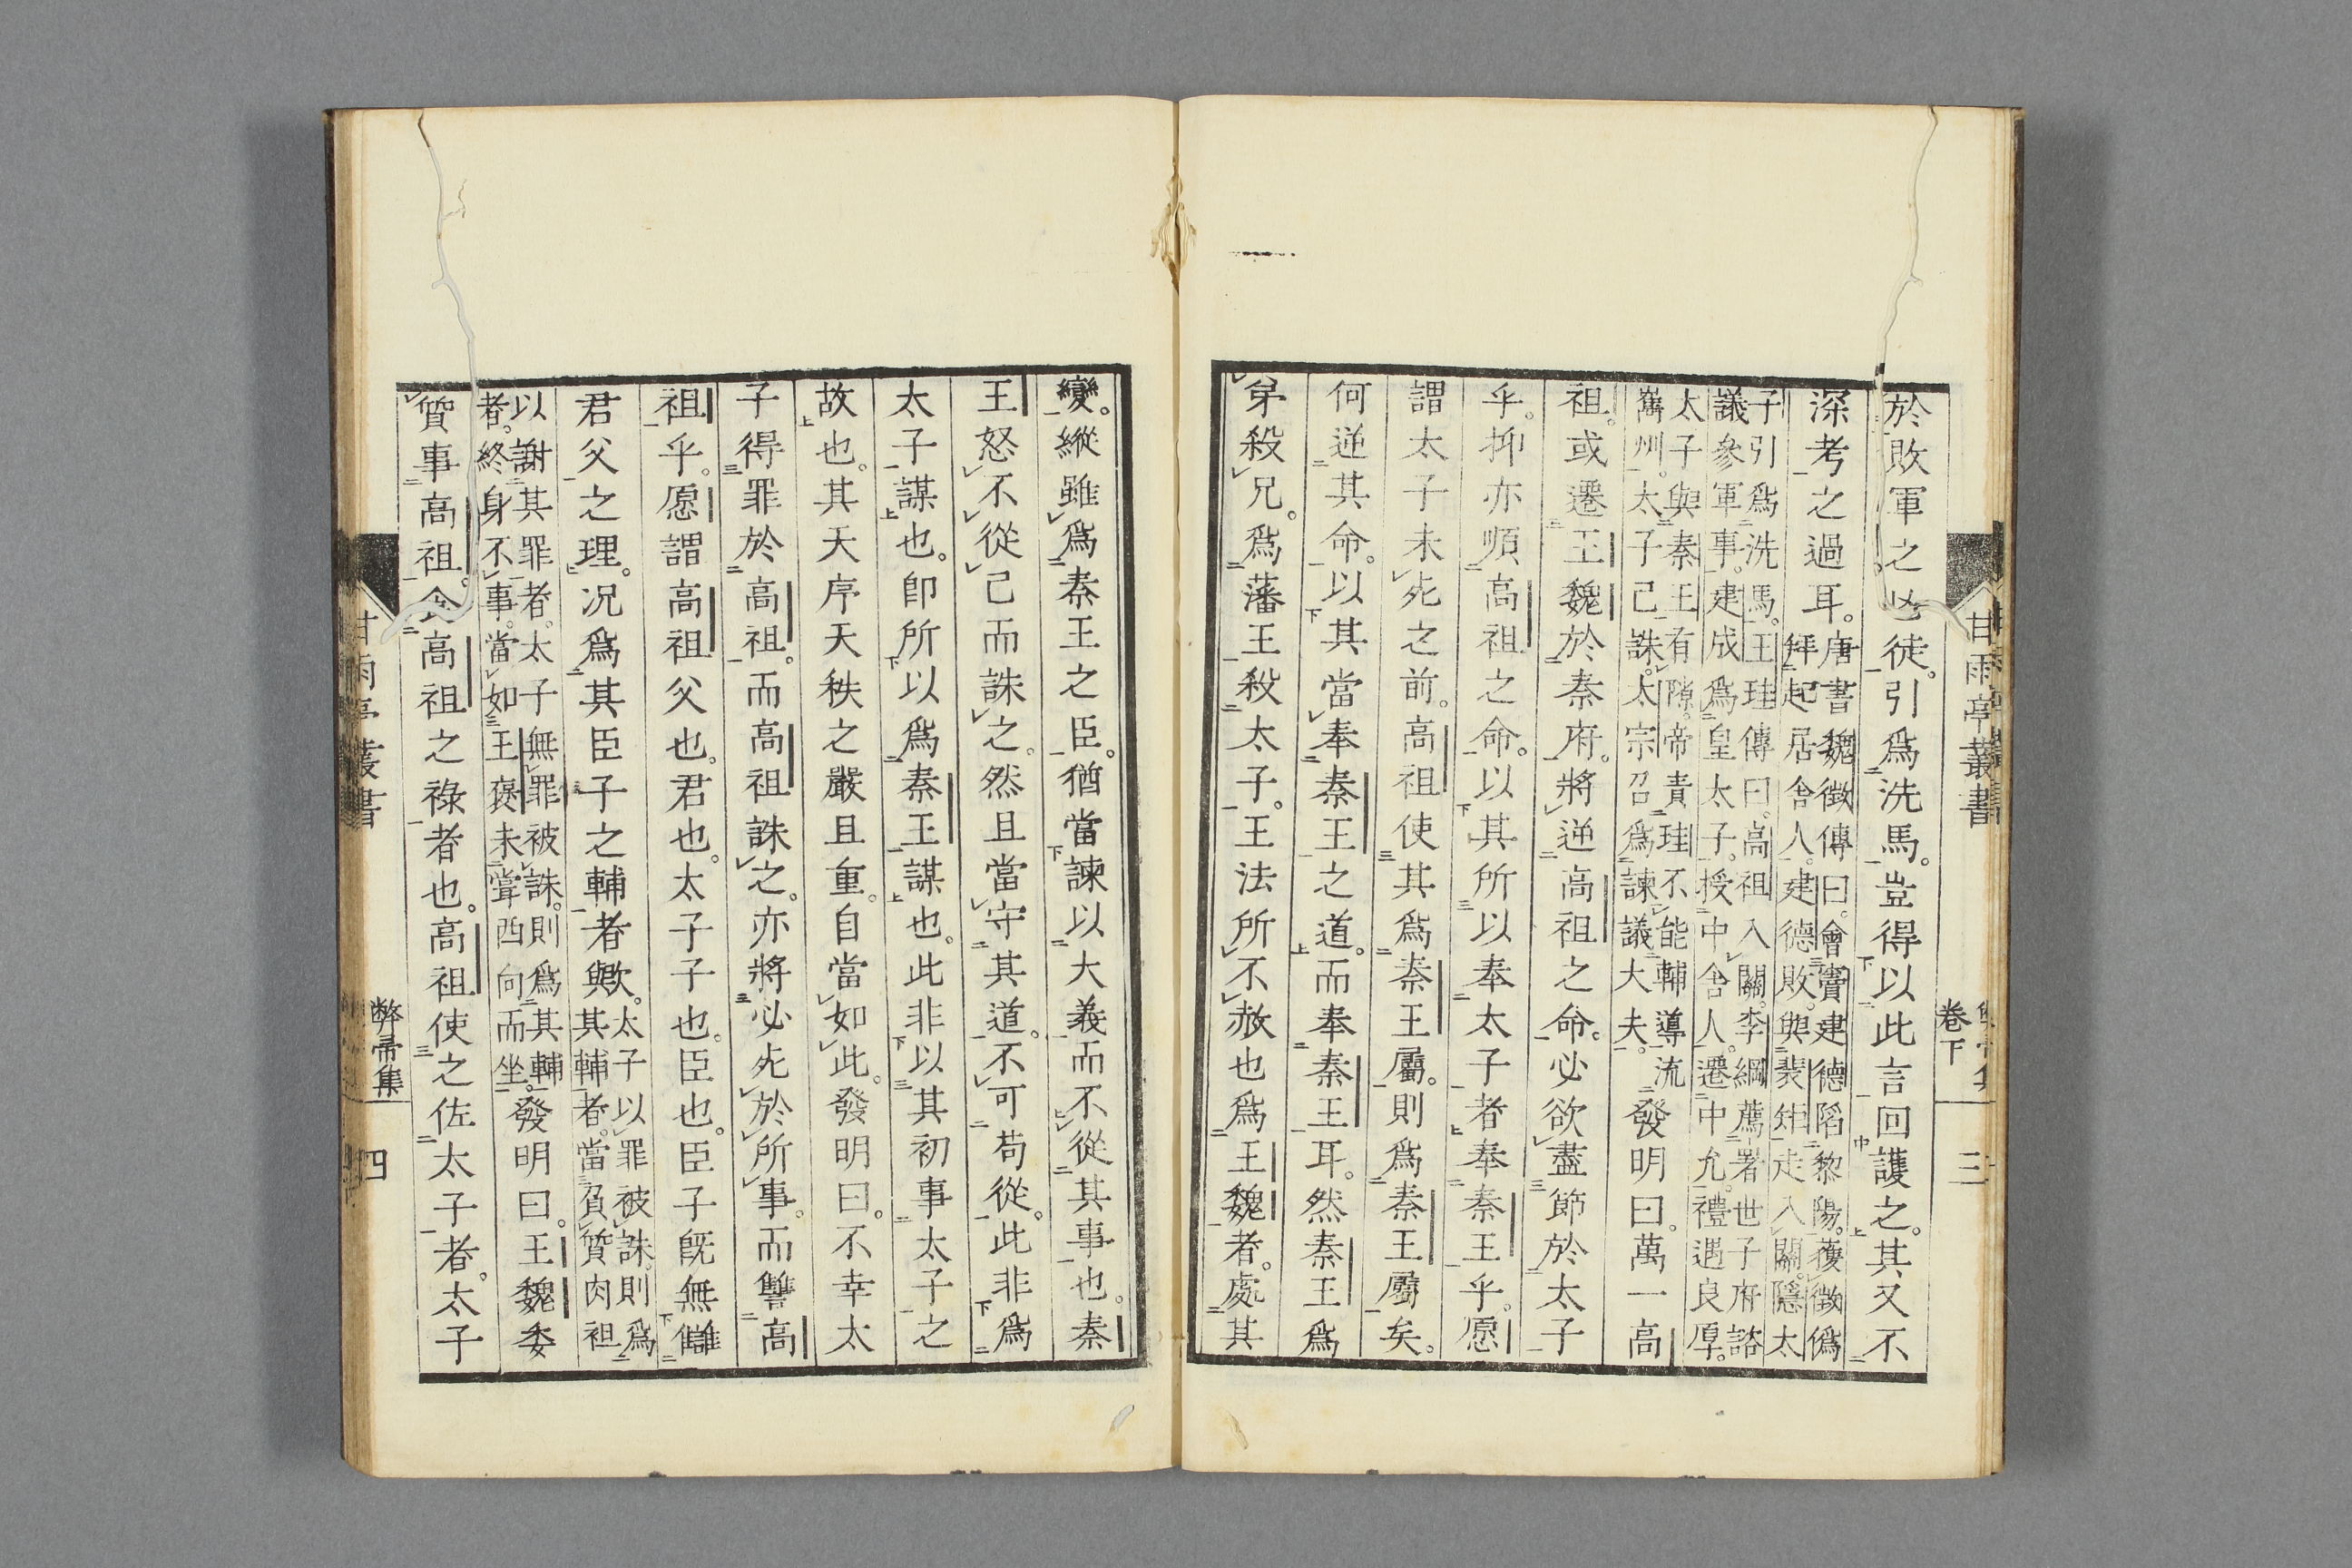 於敗軍之凶徒。引爲洗馬。豈得以此言回護之。其又不
深考之過耳。唐書魏徵傳曰。會竇建德陷黎陽。獲徵僞
拜起居舍人。建德敗。與裴矩走入關。隱太
子引爲洗馬。王珪傳曰。高祖入關。李綱薦署世子府諮
議參軍事。建成爲皇太子。授中舍人。遷中允。禮遇良厚。
太子與秦王有隙。帝責珪不能輔導流
巂州。太子已誅。太宗召爲諫議大夫。發明曰。萬一高
祖。或遷王魏於秦府。將逆高祖之命。必欲盡節於太子
乎。抑亦順高祖之命。以其所以奉太子者奉秦王乎。愿
謂太子未死之前。高祖使其爲秦王屬。則爲秦王屬矣。
何逆其命。以其當奉秦王之道。而奉秦王耳。然秦王爲
弟殺兄。爲藩王殺太子。王法所不赦也爲王魏者。處其
變。縱雖爲秦王之臣。猶當諫以大義而不從其事也。秦
王怒不從己而誅之。然且當守其道。不可苟從。此非爲
太子謀也。卽所以爲秦王謀也。此非以其初事太子之
故也。其天序天秩之嚴且重。自當如此。發明曰。不幸太
子得罪於高祖。而高祖誅之。亦將必死於所事。而讐高
祖乎。愿謂高祖父也。君也。太子子也。臣也。臣子旣無讎
君父之理。况爲其臣子之輔者歟。太子以罪被誅。則爲
其輔者。當負質肉袒
以謝其罪者。太子無罪被誅。則爲其輔
者。終身不事。當如王裒未嘗西向而坐。發明曰。王魏委
質事高祖。食高祖之祿者也。高祖使之佐太子者。太子
甘雨亭叢書
卷下
三
甘雨亭叢書
弊帚集
四